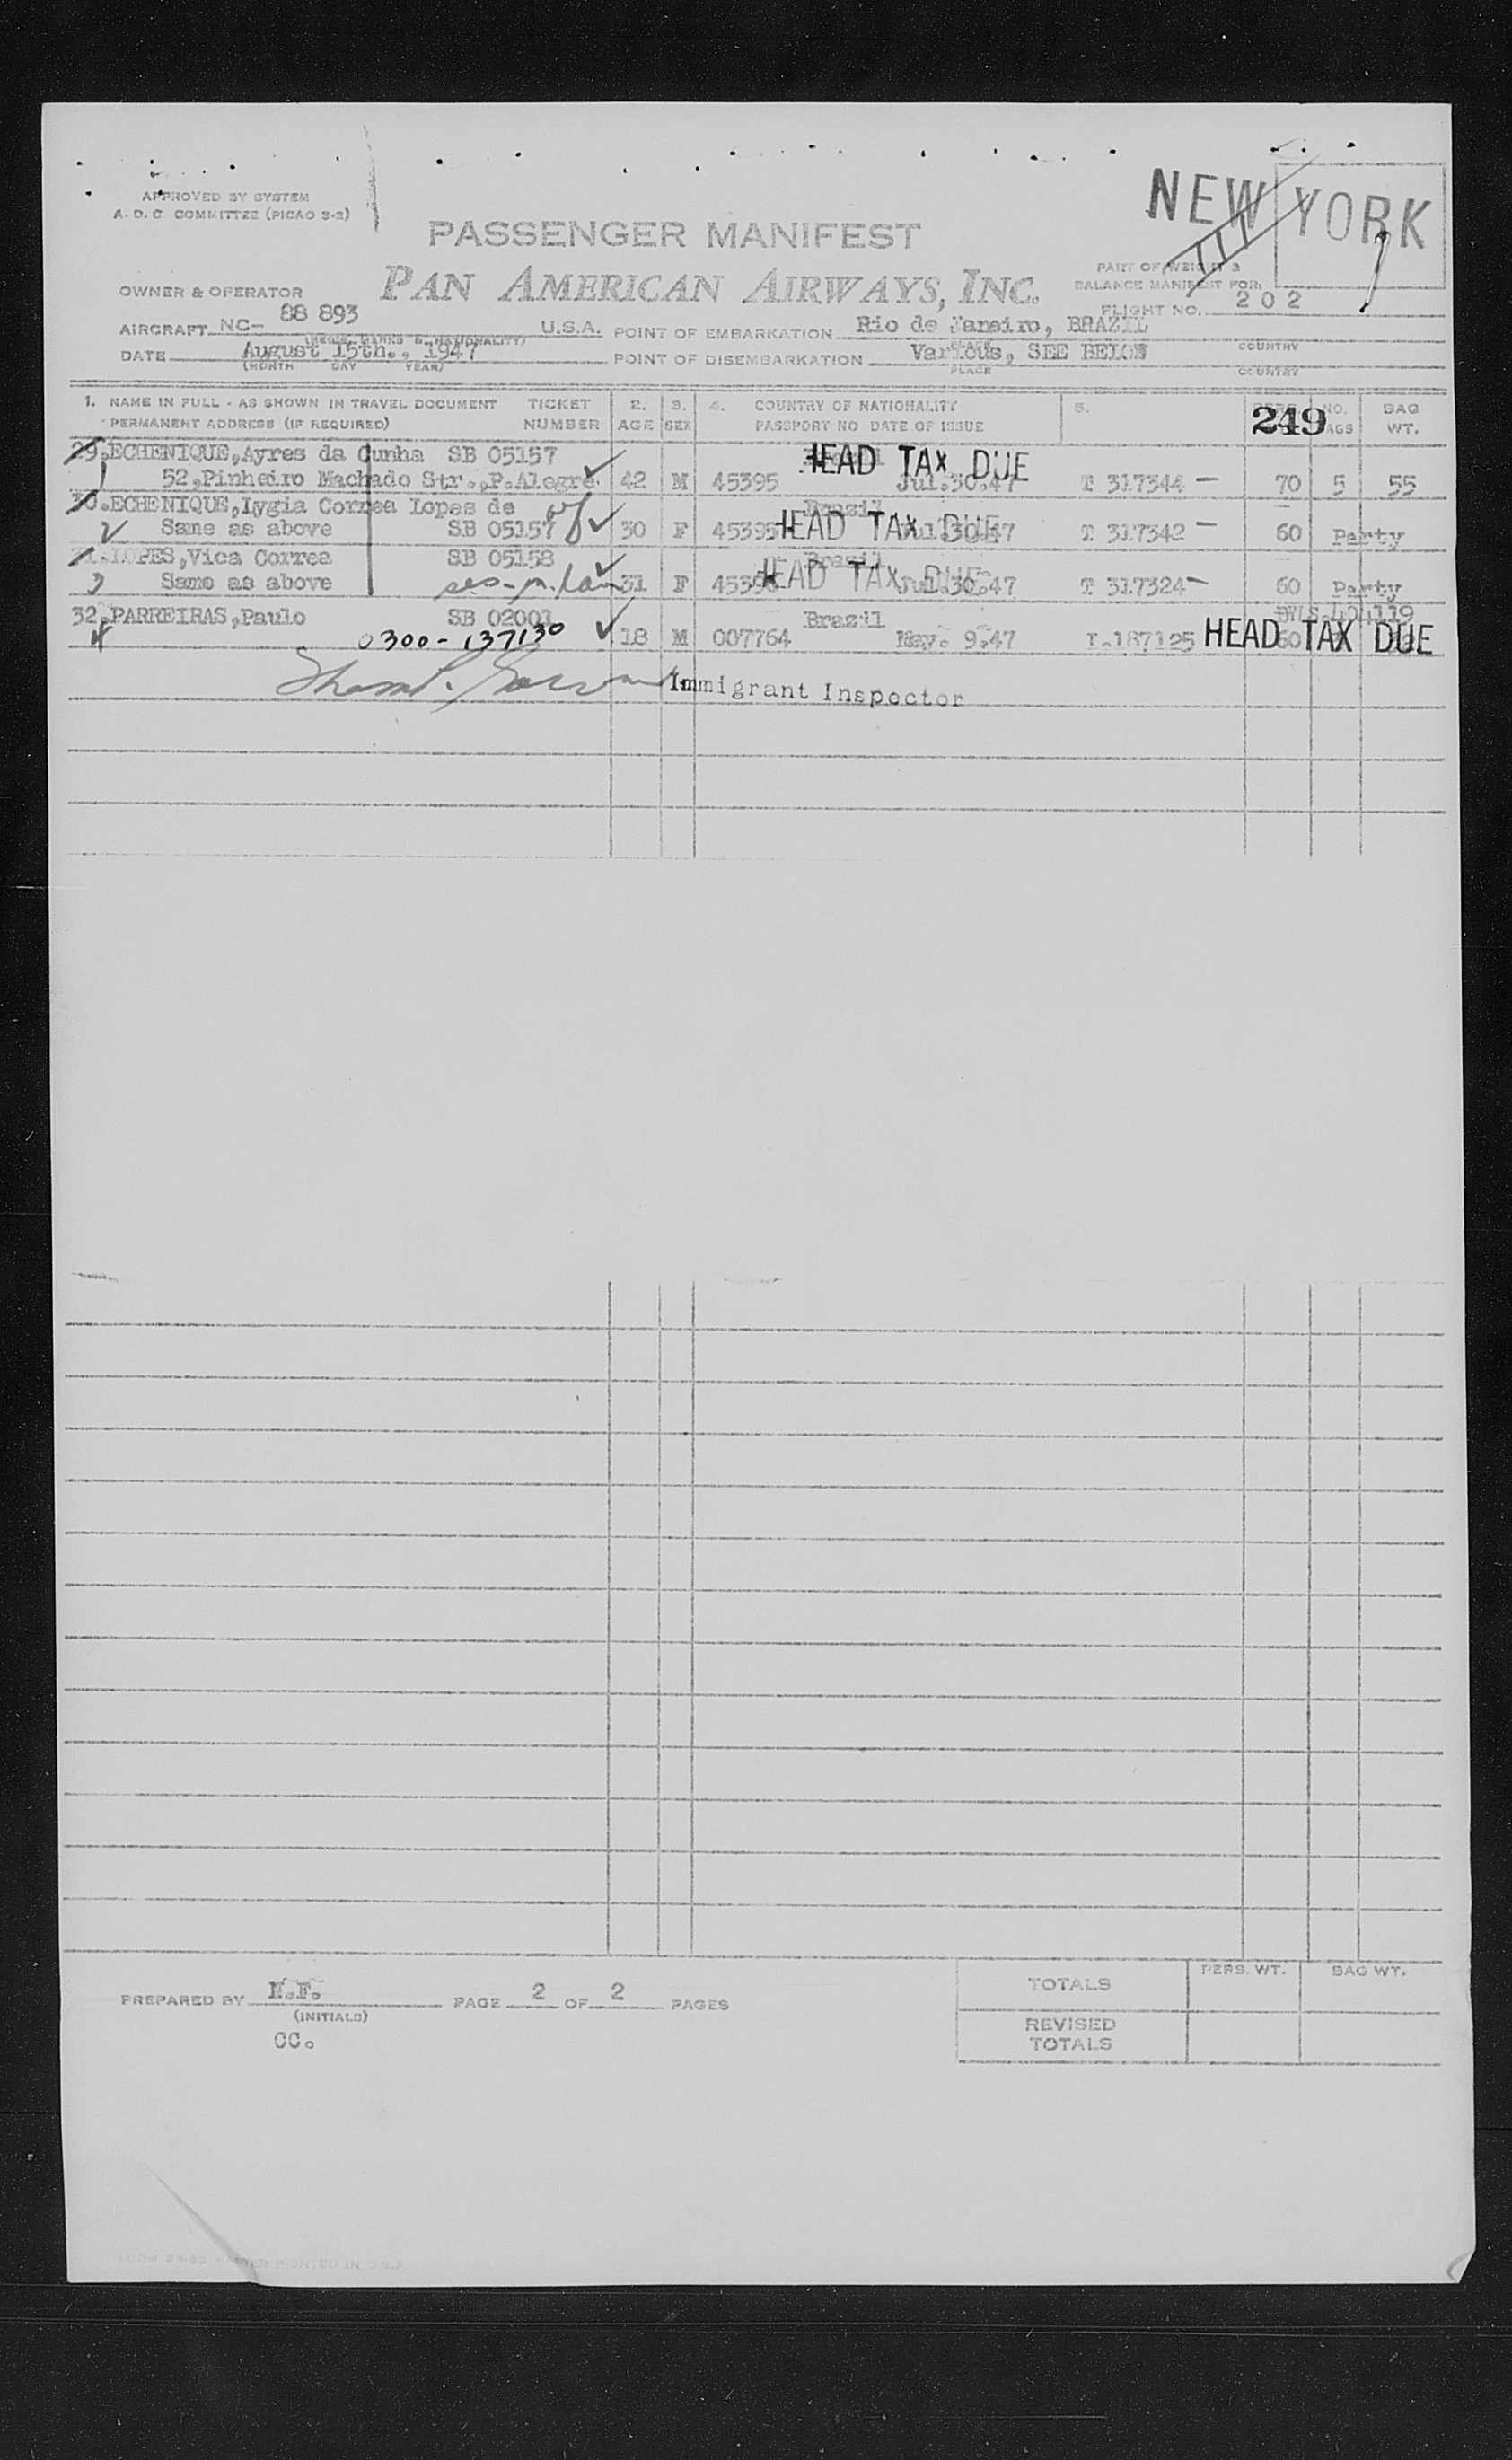 APPROVED BY SYSTEM
A. D. C. COMMITTEE (PICAO 3-2)
NEW YORK
PASSENGER MANIFEST
PAN AMERICAN AIRWAYS, INC.
PART OF WEIGHT &
BALANCE MANIFEST FOR:
FLIGHT NO. 202
OWNER & OPERATOR
AIRCRAFT NC- 88 893 U.S.A. POINT OF EMBARKATION Rio de Janeiro, BRAZIL
(REGIS. MARKS & NATIONALITY) PLACE COUNTRY
DATE August 15th., 1947 POINT OF DISEMBARKATION Various, SEE BELOW
(MONTH DAY YEAR) PLACE COUNTRY
1. NAME IN FULL - AS SHOWN IN TRAVEL DOCUMENT TICKET 2. 3. 4. COUNTRY OF NATIONALITY 5. 249 NO. BAG
PERMANENT ADDRESS (IF REQUIRED) NUMBER AGE SEX PASSPORT NO DATE OF ISSUE BAGS WT.
29.ECHENIQUE,Ayres da Cunha SB 05157 Brazil HEAD TAX DUE
1 52,Pinheiro Machado Str.,P.Alegre 42 M 45395 Jul.30.47 T 317344 — 70 5 55
30.ECHENIQUE,Lygia Correa Lopes de wf Brazil
2 Same as above SB 05157 30 F 45395 HEAD TAX DUE Jul.30.47 T 317342 — 60 Party
31.LOPES,Vica Correa SB 05158 Brazil
3 Same as above 31 F 45396 HEAD TAX DUE Jul.30.47 T 317324 — 60 Party
32.PARREIRAS,Paulo SB 02001 Brazil
4 0300-137130 18 M 007764 May. 9.47 187125 60 HEAD TAX DUE
Immigrant Inspector
PREPARED BY N.F. PAGE 2 OF 2 PAGES
(INITIALS)
CC.
TOTALS PERS. WT. BAG WT.
REVISED
TOTALS